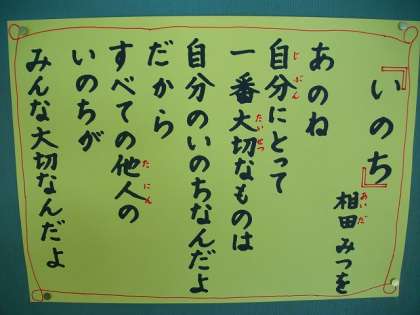 『いのち』
相田みつを
あのね
自分にとって
一番大切なものは
自分のいのちなんだよ
だから
すべての他人の
いのちが
みんな大切なんだよ